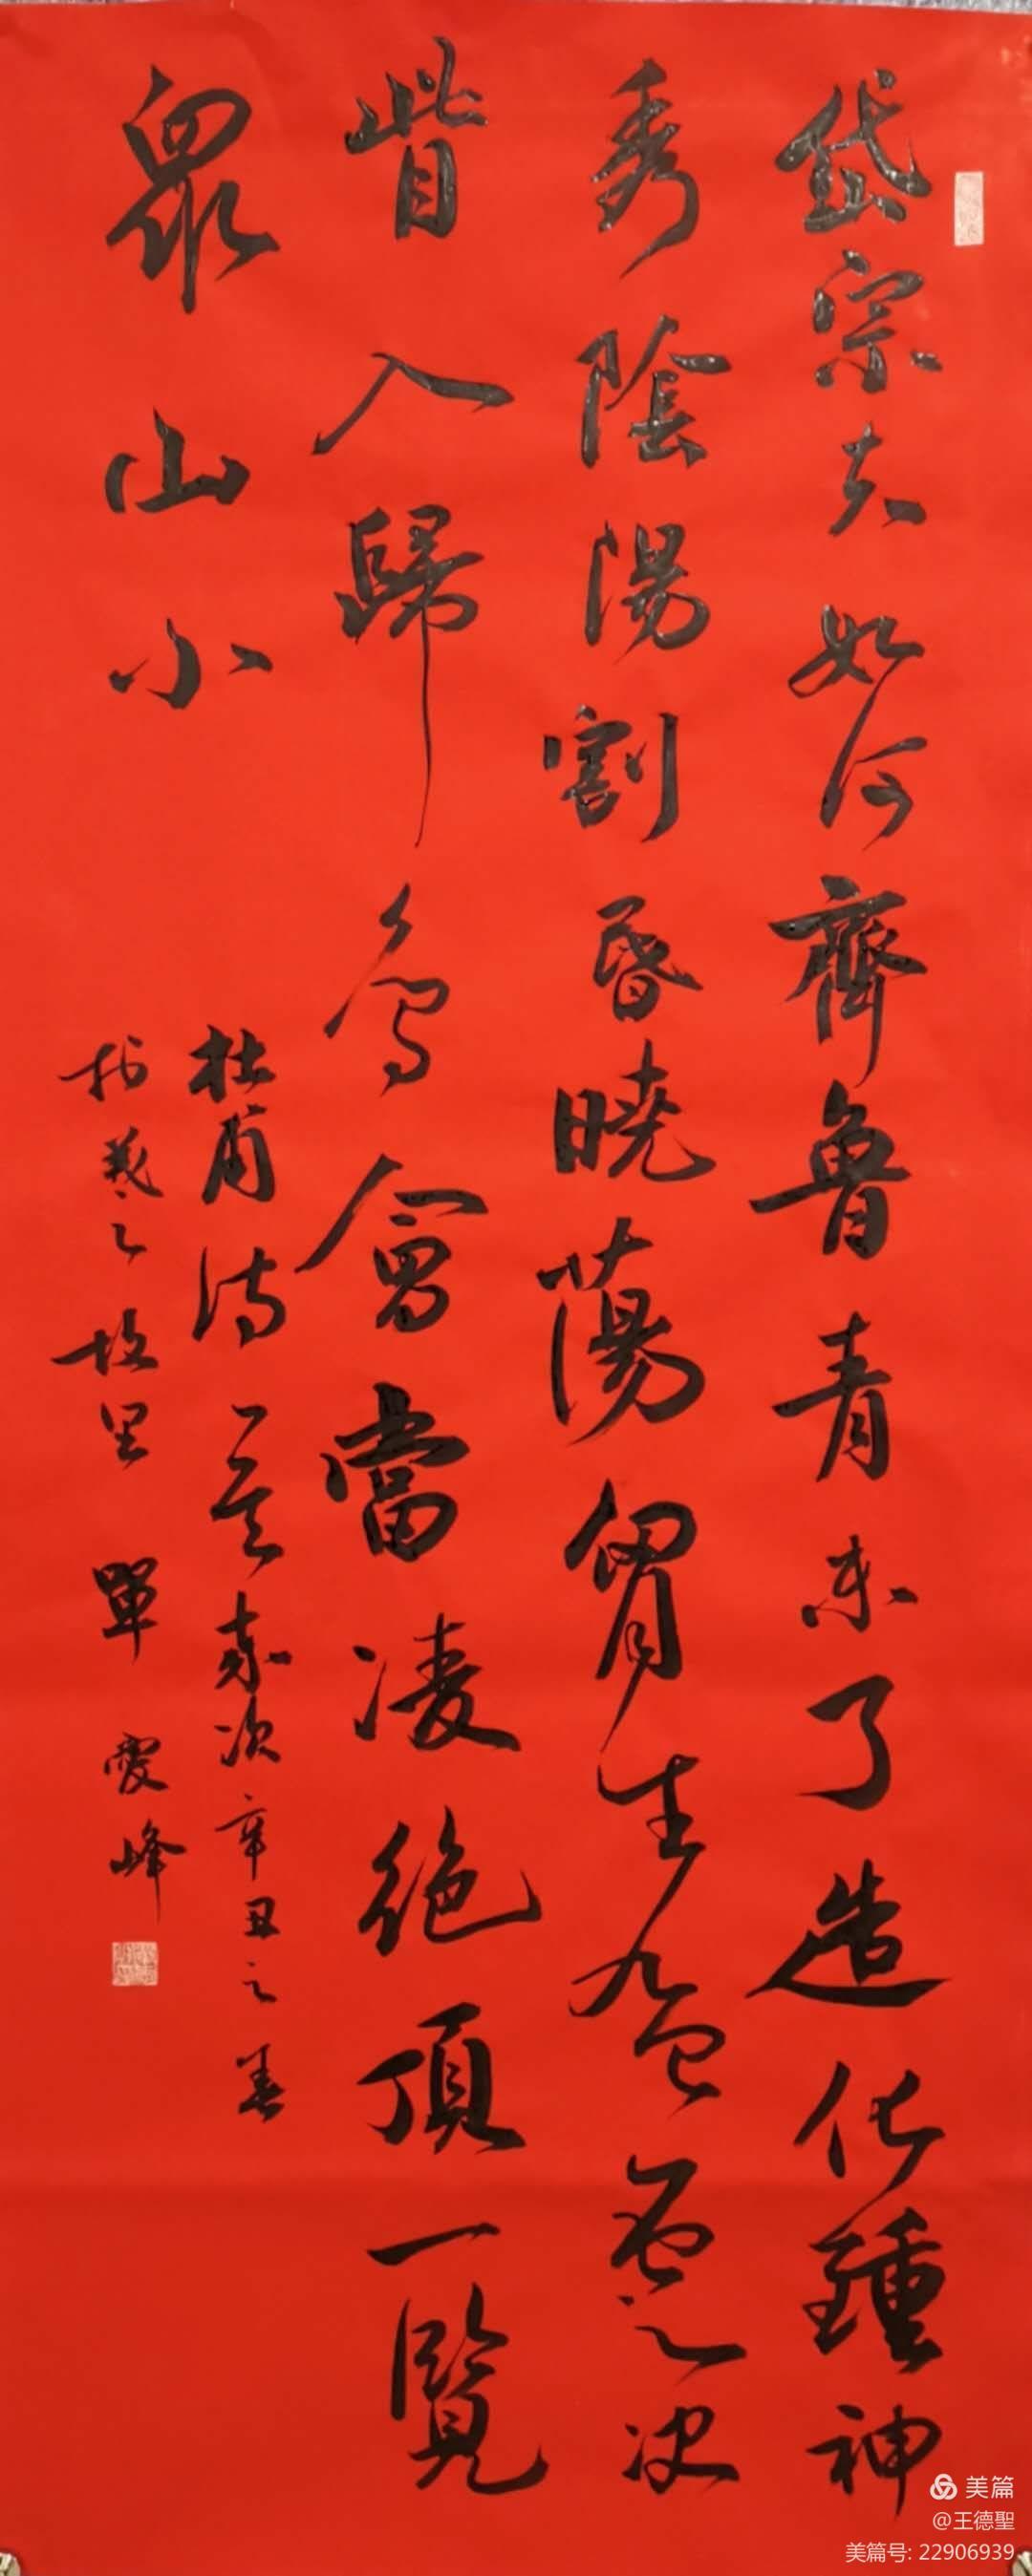 岱宗夫如何齊魯青未了造化鍾神
秀陰陽割昏曉蕩胷生曾雲决
眥入歸鳥會當凌絕頂一覽
眾山小
杜甫诗一首歲次辛丑之春
於羲之故里 單峰
美篇
@王德聖
美篇号: 22906939